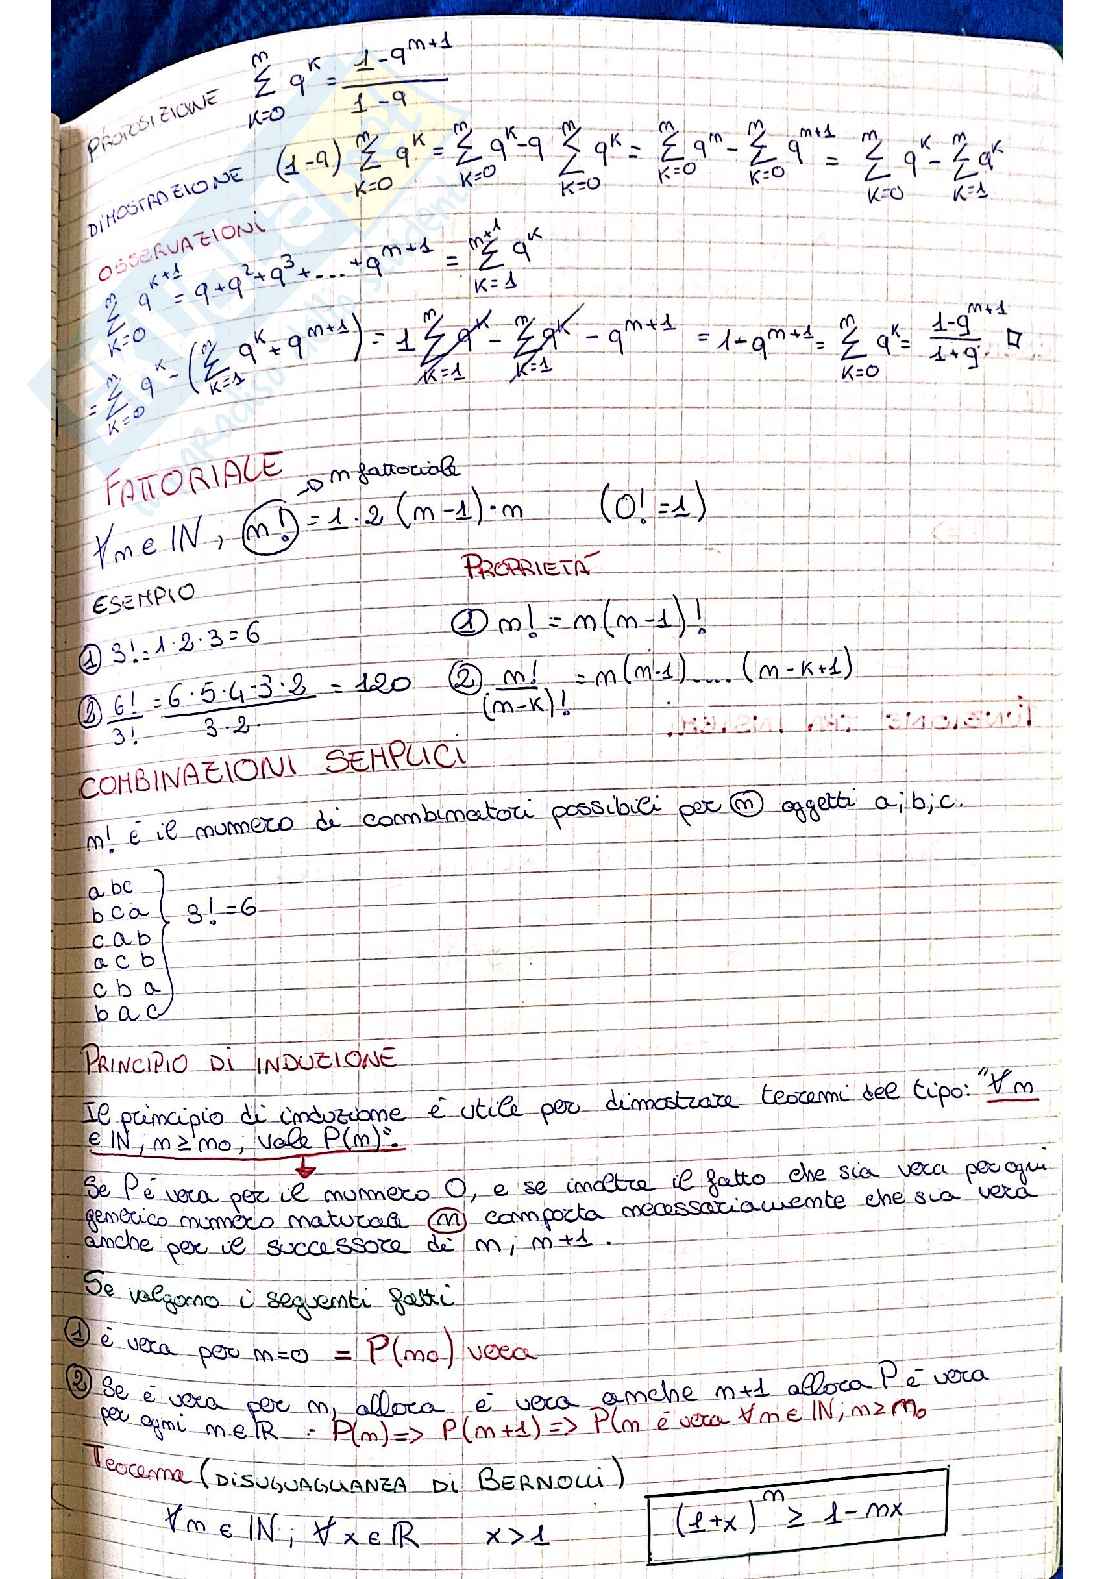 PROPOSIZIONE \sum_{K=0}^{m} q^K = \frac{1-q^{m+1}}{1-q}
DIMOSTRAZIONE (1-q) \sum_{K=0}^{m} q^K = \sum_{K=0}^{m} q^K - q \sum_{K=0}^{m} q^K = \sum_{K=0}^{m} q^m - \sum_{K=0}^{m} q^{m+1} = \sum_{K=0}^{m} q^K - \sum_{K=1}^{m} q^K
OSSERVAZIONI
\sum_{K=0}^{m} q^{K+1} = q+q^2+q^3+....+q^{m+1} = \sum_{K=1}^{m+1} q^K
= \sum_{K=0}^{m} q^K - (\sum_{K=1}^{m} q^K + q^{m+1}) = 1 \sum_{K=1}^{m} q^K - \sum_{K=1}^{m} q^K - q^{m+1} = 1-q^{m+1} = \sum_{K=0}^{m} q^K = \frac{1-q^{m+1}}{1+q}. □
FATTORIALE → m fattoriale
∀m∈IN, m! = 1·2(m-1)·m (0!=1)
ESEMPIO
PROPRIETÁ
① 3!=1·2·3=6
① m! = m(m-1)!
② \frac{6!}{3!} = \frac{6·5·4·3·2}{3·2} = 120
② \frac{m!}{(m-K)!} = m(m-1)....(m-K+1)
COMBINAZIONI SEMPLICI
m! é il numero di combinatori possibili per m oggetti a;b;c.
abc
bca 3!=6
cab
acb
cba
bac
PRINCIPIO DI INDUZIONE
Il principio di induzione é utile per dimostrare teoremi del tipo: "∀m
∈IN, m≥mo, vale P(m)".
Se P é vera per il numero 0, e se inoltre il fatto che sia vera per ogni
generico numero naturale m comporta necessariamente che sia vera
anche per il successore di m, m+1.
Se valgono i seguenti fatti
① é vera per m=0 = P(mo) vera
② Se é vera per m, allora é vera anche m+1 allora P é vera
per ogni m∈IR. P(m) => P(m+1) => P(m é vera ∀m∈IN, m≥m₀
Teorema (DISUGUAGLIANZA DI BERNOLLI)
∀m∈IN, ∀x∈IR x>1 (1+x)^m ≥ 1-mx